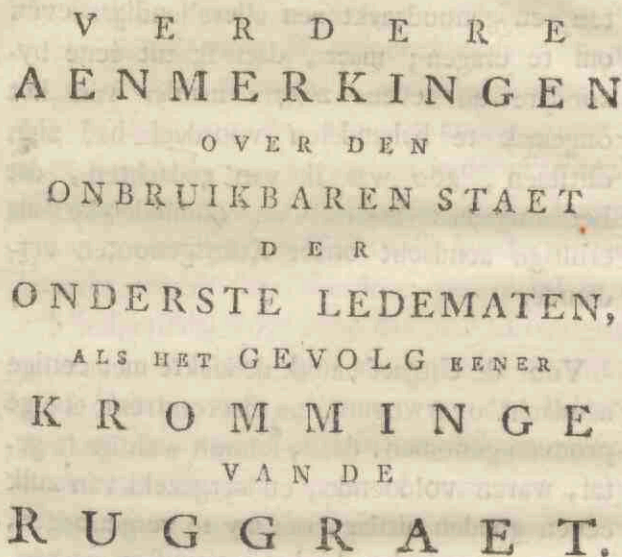 VERDERE
AENMERKINGEN
OVER DEN
ONBRUIKBAREN STAET
DER
ONDERSTE LEDEMATEN,
ALS HET GEVOLG EENER
KROMMINGE
VANDE
RUGGRAET.